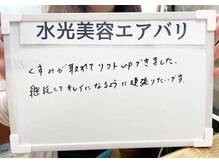 水光美容エアバリ
くすみが取れてリフトupできました。
継続してキレイになるように頑張りたいです。